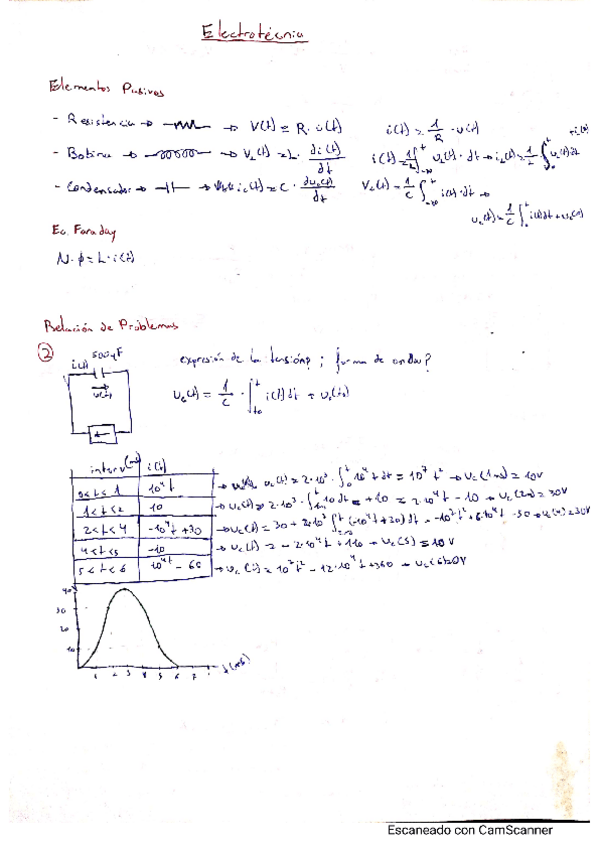 Electrotécnia
Elementos Pasivos
- Resistencia → → V(t) = R · i(t) i(t) = 1/R · v(t)
- Bobina → → V_L(t) = L · di(t)/dt i(t) = 1/L ∫ v_L(t) · dt → i_L(t) = 1/L · ∫ v_L(t) dt + i(0)
- Condensador → → i_c(t) = C · du_c(t)/dt V_c(t) = 1/C ∫ i(t) · dt →
u_c(t) = 1/C ∫ i(t) dt + u_c(0)
Ec. Faraday
N · ϕ = L · i(t)
Relación de Problemas
② 500 µF expresión de la tensión? ; forma de onda?
i(t)
u(t) u_c(t) = 1/C · ∫ i(t) dt + u_c(t0)
interv (ms) i(t)
0<t<1 10⁴t → u_c(t) = 2·10³ · ∫ 10⁴t dt = 10⁷t² → u_c(1ms) = 10V
1<t<2 10 → u_c(t) = 2·10³ · ∫ 10 dt = +10 = 2·10⁴t - 10 → u_c(2ms) = 30V
2<t<4 -10⁴t + 30 → u_c(t) = 30 + 2·10³ ∫ (-10⁴t + 30) dt = -10⁷t² + 6·10⁴t - 50 → u_c(4) = 30V
4<t<5 -10 → u_c(t) = -2·10⁴t + 110 → u_c(5) = 10V
5<t<6 10⁴t - 60 → u_c(t) = 10⁷t² - 12·10⁴t + 360 → u_c(6) = 0V
40
30
20
10
1 2 3 4 5 6 7 t (ms)
Escaneado con CamScanner